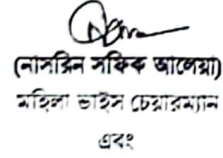 (নাসরিন সকিক আলেয়া)
মহিলা ভাইস চেয়ারম্যান
এবং